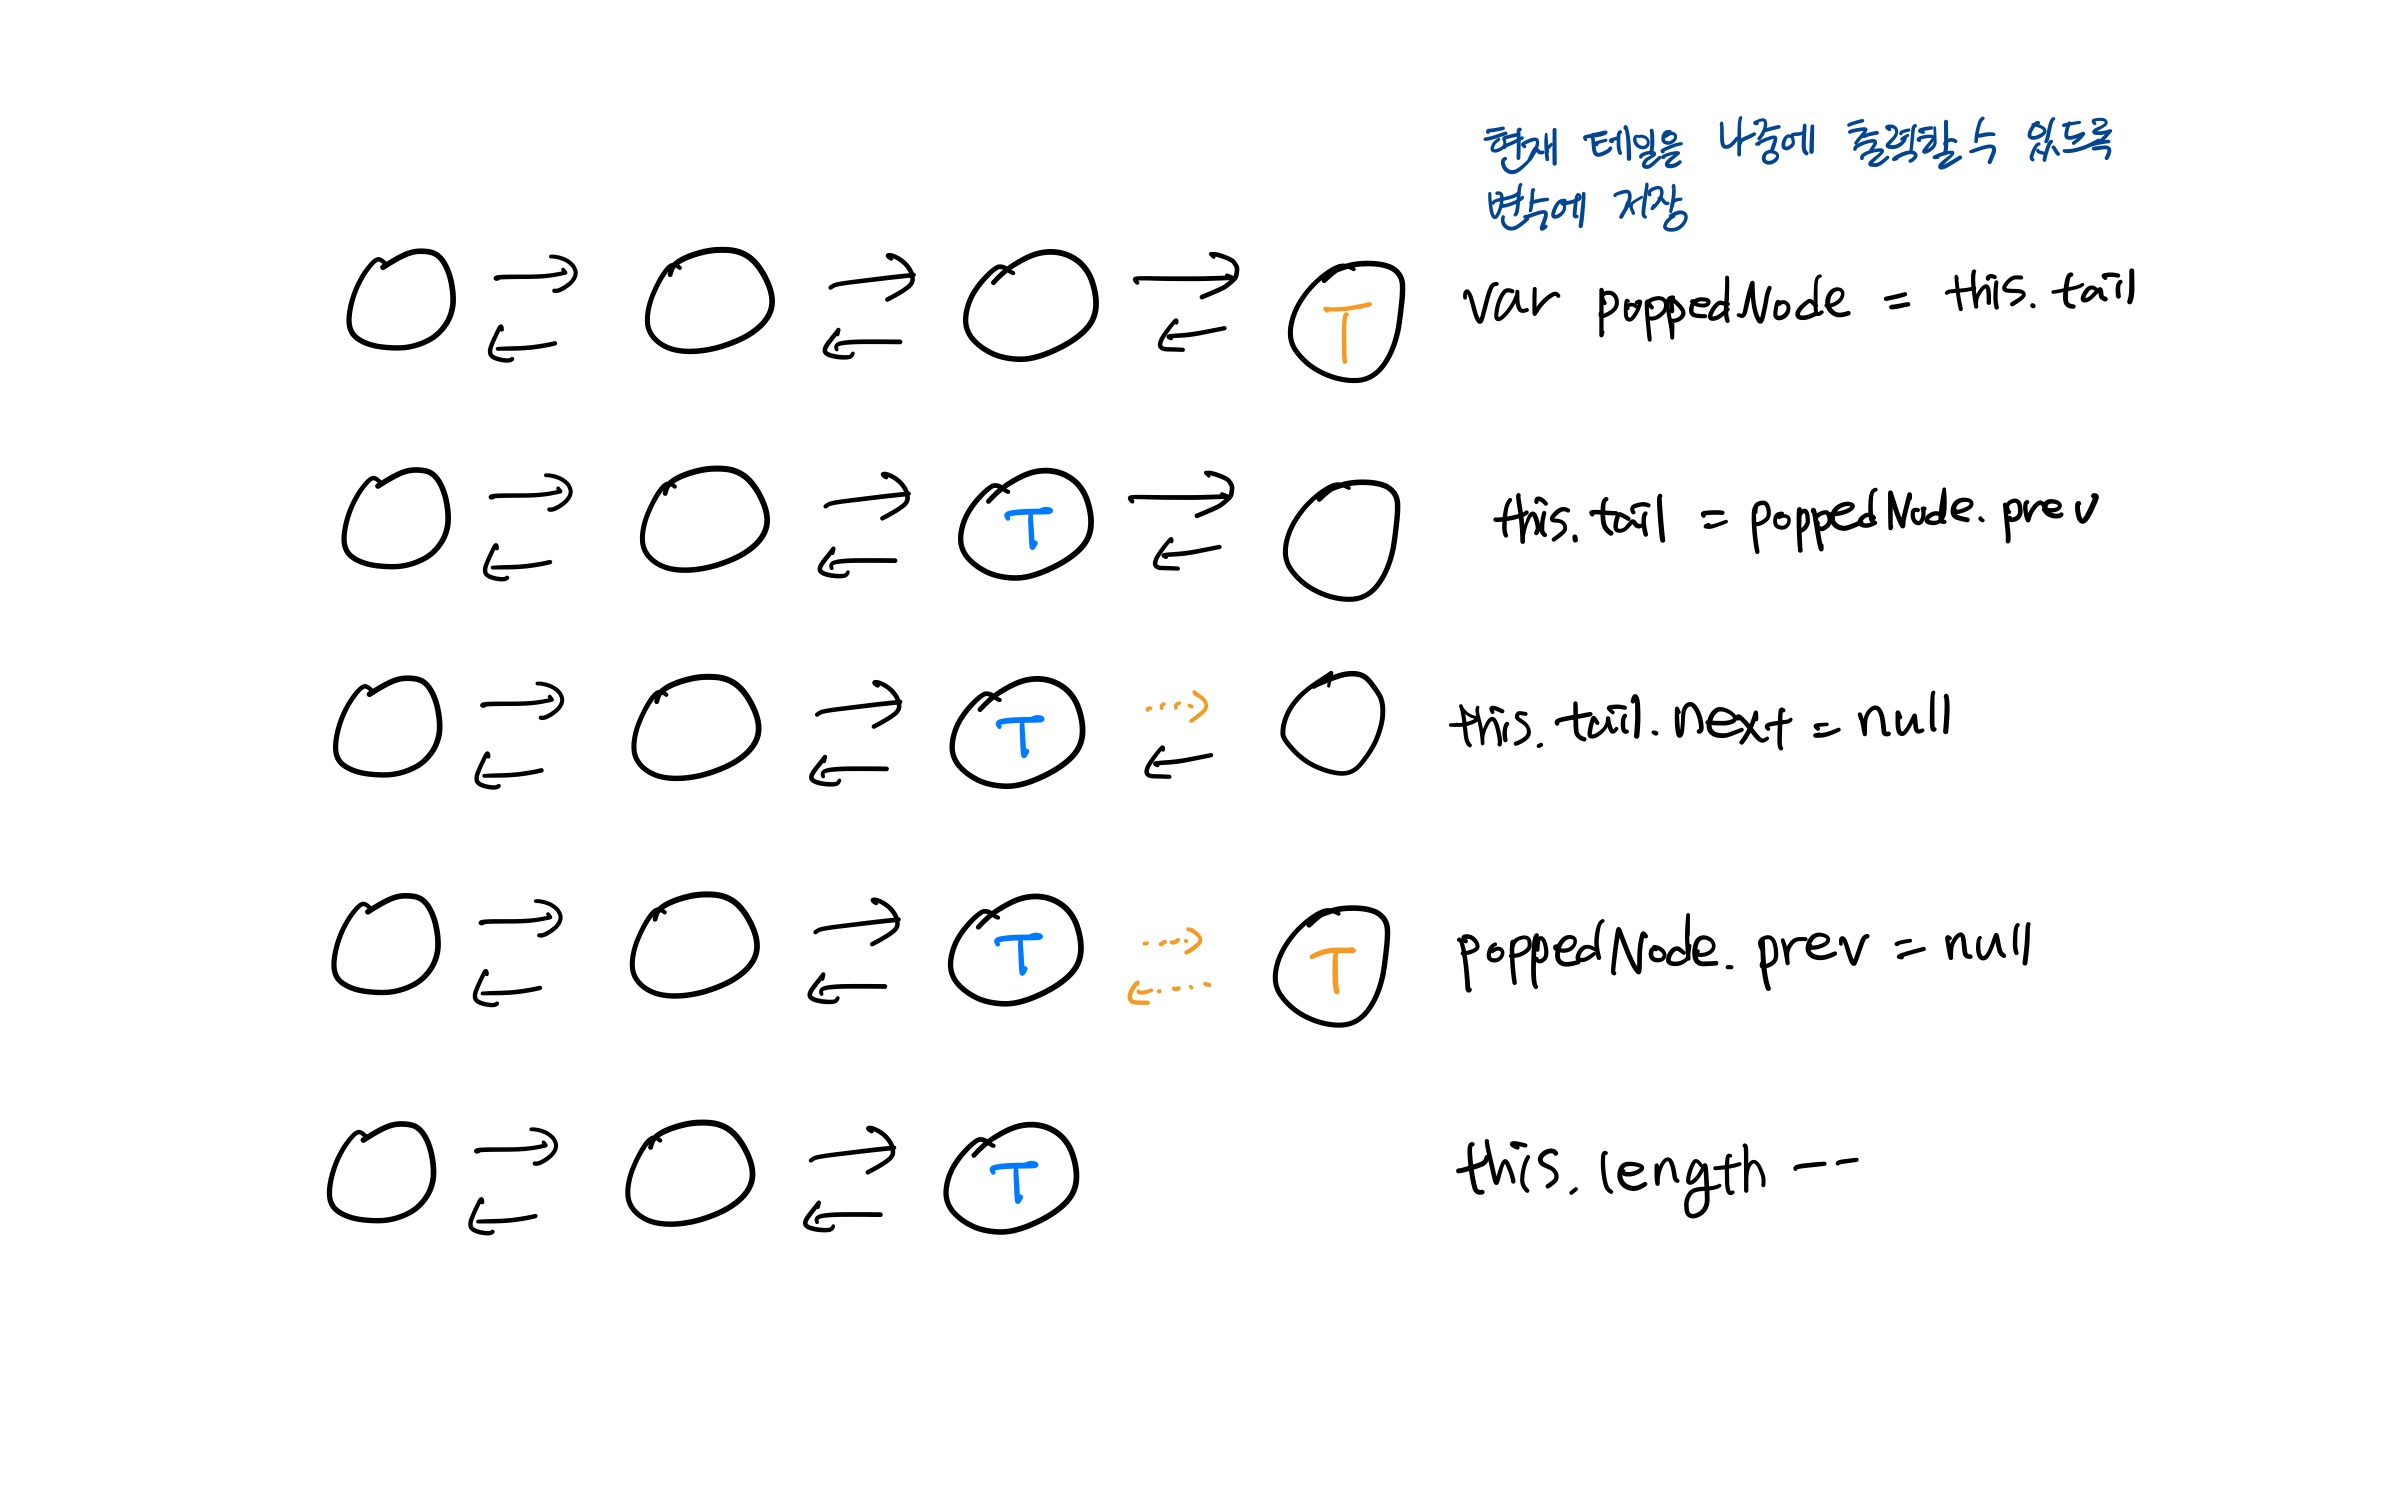 현재 테일을 나중에 출력할 수 있도록
변수에 저장
T
var poppedNode = this.tail
T
this.tail = poppedNode.prev
T
this.tail.next = null
T
T
poppedNode.prev = null
T
this.length --